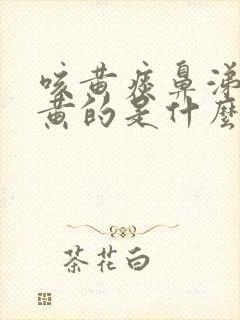 咳黄痰鼻涕
黄的是什么
茶花白